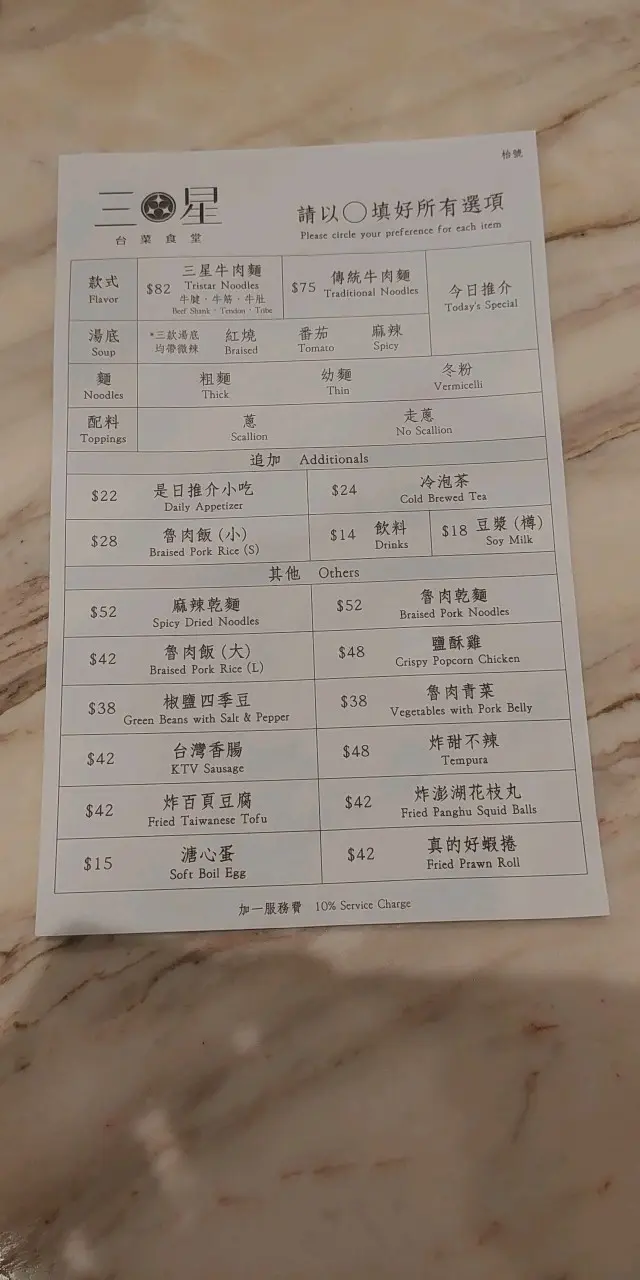 枱號
三星
台菜食堂
請以〇填好所有選項
Please circle your preference for each item
款式
Flavor
$82 三星牛肉麵
Tristar Noodles
牛腱·牛筋·牛肚
Beef Shank · Tendon · Tribe
$75 傳統牛肉麵
Traditional Noodles
今日推介
Today's Special
湯底
Soup
*三款湯底
均帶微辣
紅燒
Braised
番茄
Tomato
麻辣
Spicy
麵
Noodles
粗麵
Thick
幼麵
Thin
冬粉
Vermicelli
配料
Toppings
蔥
Scallion
走蔥
No Scallion
追加 Additionals
$22 是日推介小吃
Daily Appetizer
$24 冷泡茶
Cold Brewed Tea
$28 魯肉飯(小)
Braised Pork Rice (S)
$14 飲料
Drinks
$18 豆漿(樽)
Soy Milk
其他 Others
$52 麻辣乾麵
Spicy Dried Noodles
$52 魯肉乾麵
Braised Pork Noodles
$42 魯肉飯(大)
Braised Pork Rice (L)
$48 鹽酥雞
Crispy Popcorn Chicken
$38 椒鹽四季豆
Green Beans with Salt & Pepper
$38 魯肉青菜
Vegetables with Pork Belly
$42 台灣香腸
KTV Sausage
$48 炸甜不辣
Tempura
$42 炸百頁豆腐
Fried Taiwanese Tofu
$42 炸澎湖花枝丸
Fried Panghu Squid Balls
$15 溏心蛋
Soft Boil Egg
$42 真的好蝦捲
Fried Prawn Roll
加一服務費 10% Service Charge